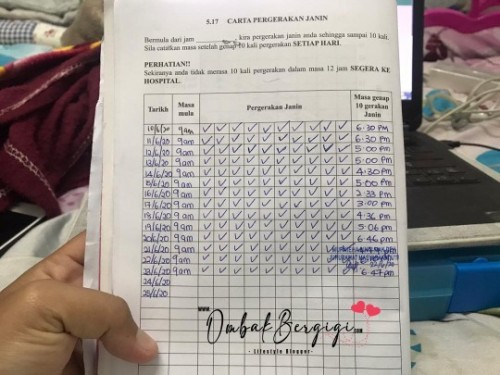 5.17 CARTA PERGERAKAN JANIN
Bermula dari jam kira pergerakan janin anda sehingga sampai 10 kali.
Sila catatkan masa setelah genap 10 kali pergerakan SETIAP HARI.
PERHATIAN!!
Sekiranya anda tidak merasa 10 kali pergerakan dalam masa 12 jam SEGERA KE
HOSPITAL.
Tarikh Masa mula Pergerakan Janin Masa genap 10 gerakan Janin
10/6/20 9am ✓ ✓ ✓ ✓ ✓ ✓ ✓ ✓ ✓ ✓ 6:30 PM
11/6/20 9am ✓ ✓ ✓ ✓ ✓ ✓ ✓ ✓ ✓ ✓ 6:30 PM
12/6/20 9am ✓ ✓ ✓ ✓ ✓ ✓ ✓ ✓ ✓ ✓ 5:00 PM
13/6/20 9am ✓ ✓ ✓ ✓ ✓ ✓ ✓ ✓ ✓ ✓ 5:00 PM
14/6/20 9am ✓ ✓ ✓ ✓ ✓ ✓ ✓ ✓ ✓ ✓ 4:30 PM
15/6/20 9am ✓ ✓ ✓ ✓ ✓ ✓ ✓ ✓ ✓ ✓ 5:00 PM
16/6/20 9am ✓ ✓ ✓ ✓ ✓ ✓ ✓ ✓ ✓ ✓ 2:33 PM
17/6/20 9am ✓ ✓ ✓ ✓ ✓ ✓ ✓ ✓ ✓ ✓ 3:00 PM
18/6/20 9am ✓ ✓ ✓ ✓ ✓ ✓ ✓ ✓ ✓ ✓ 4:36 PM
19/6/20 9am ✓ ✓ ✓ ✓ ✓ ✓ ✓ ✓ ✓ ✓ 5:06 PM
20/6/20 9am ✓ ✓ ✓ ✓ ✓ ✓ ✓ ✓ ✓ ✓ 6:46 PM
21/6/20 9am ✓ ✓ ✓ ✓ ✓ ✓ ✓ ✓
22/6/20 9am ✓ ✓ ✓ ✓ ✓ ✓ ✓ ✓
23/6/20 9am ✓ ✓ ✓ ✓ ✓ ✓ ✓ ✓ ✓ ✓ 6:47 PM
24/6/20
25/6/20
www.
OmbakBergigi
.com
- Lifestyle Blogger -